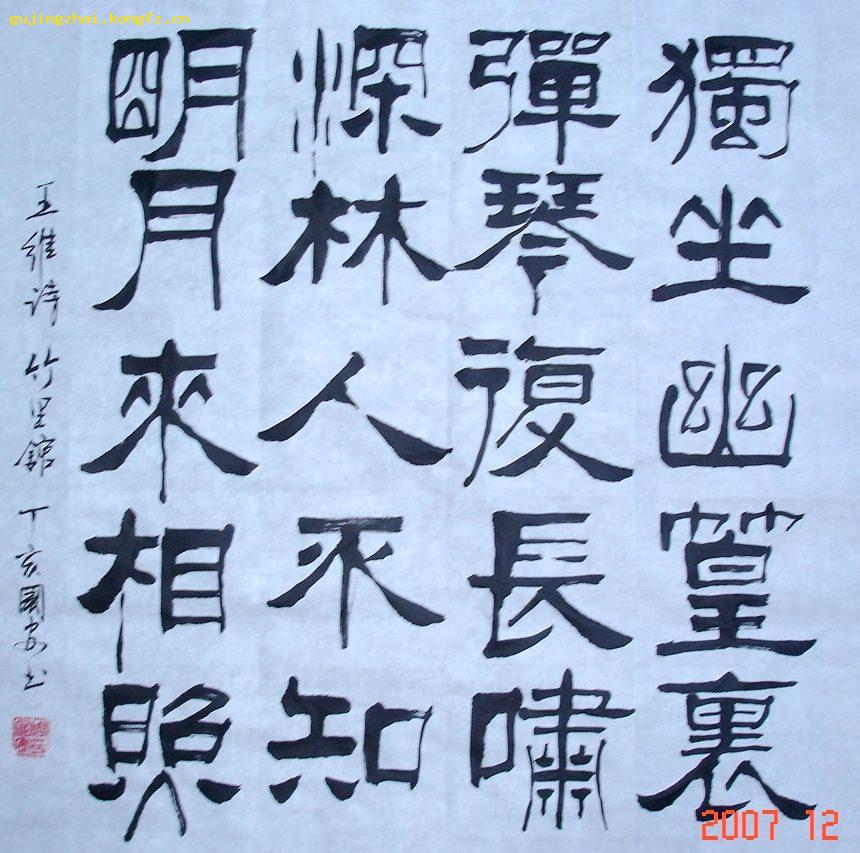 gujingzhai.kongfz.cn
獨坐幽篁裏
彈琴復長嘯
深林人不知
明月來相照
王維詩竹里館丁亥國安书
2007 12